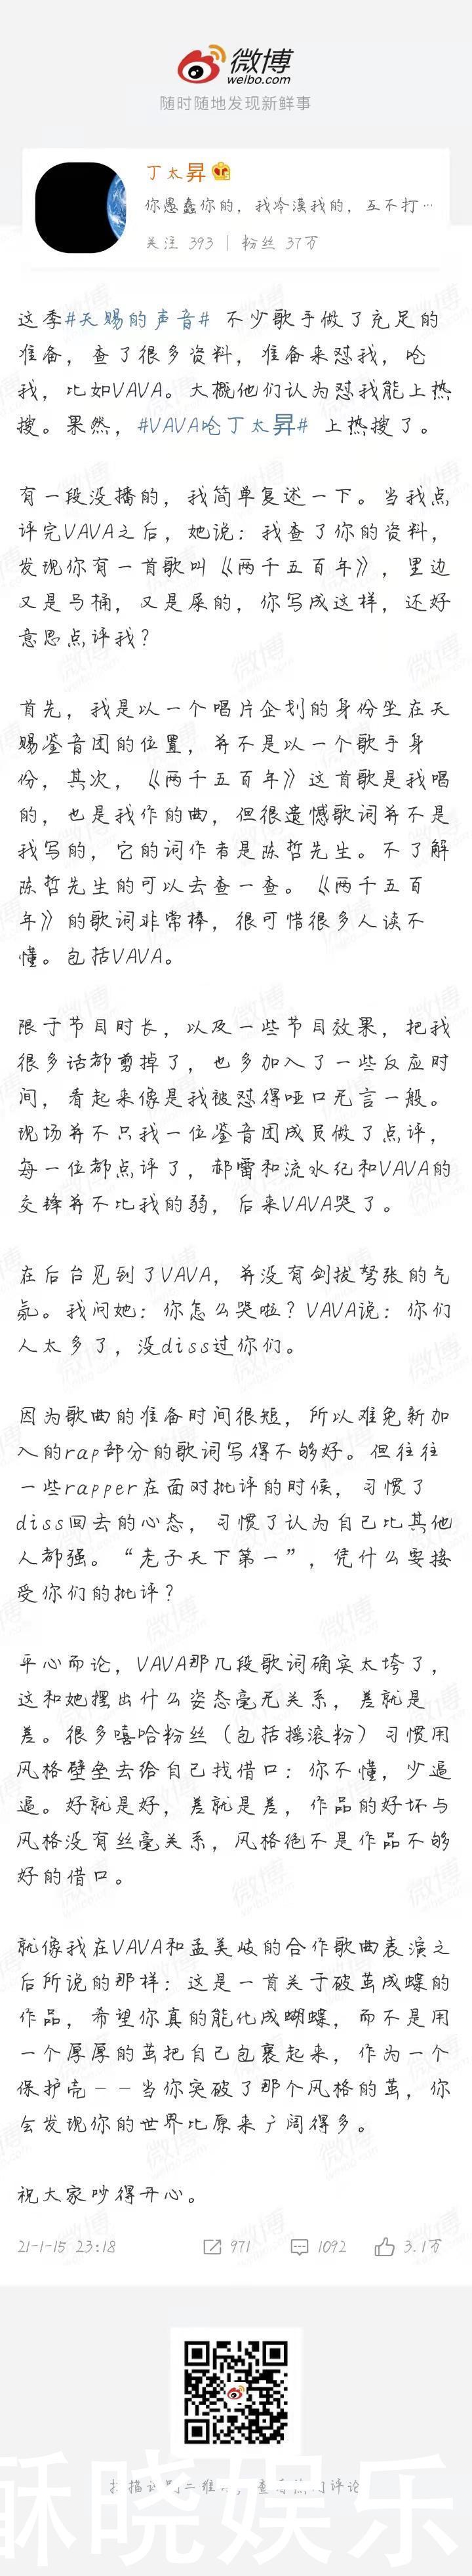 微博
weibo.com
随时随地发现新鲜事
丁太昇
你愚蠢你的，我冷漠我的，互不打…
关注 393 | 粉丝 37万
这季#天赐的声音# 不少歌手做了充足的
准备，查了很多资料，准备来怼我，呛
我，比如VAVA。大概他们认为怼我能上热
搜。果然，#VAVA呛丁太昇# 上热搜了。
有一段没播的，我简单复述一下。当我点
评完VAVA之后，她说：我查了你的资料，
发现你有一首歌叫《两千五百年》，里边
又是马桶，又是屎的，你写成这样，还好
意思点评我？
首先，我是以一个唱片企划的身份坐在天
赐鉴音团的位置，并不是以一个歌手身
份，其次，《两千五百年》这首歌是我唱
的，也是我作的曲，但很遗憾歌词并不是
我写的，它的词作者是陈哲先生。不了解
陈哲先生的可以去查一查。《两千五百
年》的歌词非常棒，很可惜很多人读不
懂。包括VAVA。
限于节目时长，以及一些节目效果，把我
很多话都剪掉了，也多加入了一些反应时
间，看起来像是我被怼得哑口无言一般。
现场并不只我一位鉴音团成员做了点评，
每一位都点评了，郝雷和流水纪和VAVA的
交锋并不比我的弱，后来VAVA哭了。
在后台见到了VAVA，并没有剑拔弩张的气
氛。我问她：你怎么哭啦？VAVA说：你们
人太多了，没diss过你们。
因为歌曲的准备时间很短，所以难免新加
入的rap部分的歌词写得不够好。但往往
一些rapper在面对批评的时候，习惯了
diss回去的心态，习惯了认为自己比其他
人都强。“老子天下第一”，凭什么要接
受你们的批评？
平心而论，VAVA那几段歌词确实太垮了，
这和她摆出什么姿态毫无关系，差就是
差。很多嘻哈粉丝（包括摇滚粉）习惯用
风格壁垒去给自己找借口：你不懂，少逼
逼。好就是好，差就是差，作品的好坏与
风格没有丝毫关系，风格绝不是作品不够
好的借口。
就像我在VAVA和孟美岐的合作歌曲表演之
后所说的那样：这是一首关于破茧成蝶的
作品，希望你真的能化成蝴蝶，而不是用
一个厚厚的茧把自己包裹起来，作为一个
保护壳——当你突破了那个风格的茧，你
会发现你的世界比原来广阔得多。
祝大家吵得开心。
21-1-15 23:18 971 1092 3.1万
酥晓娱乐